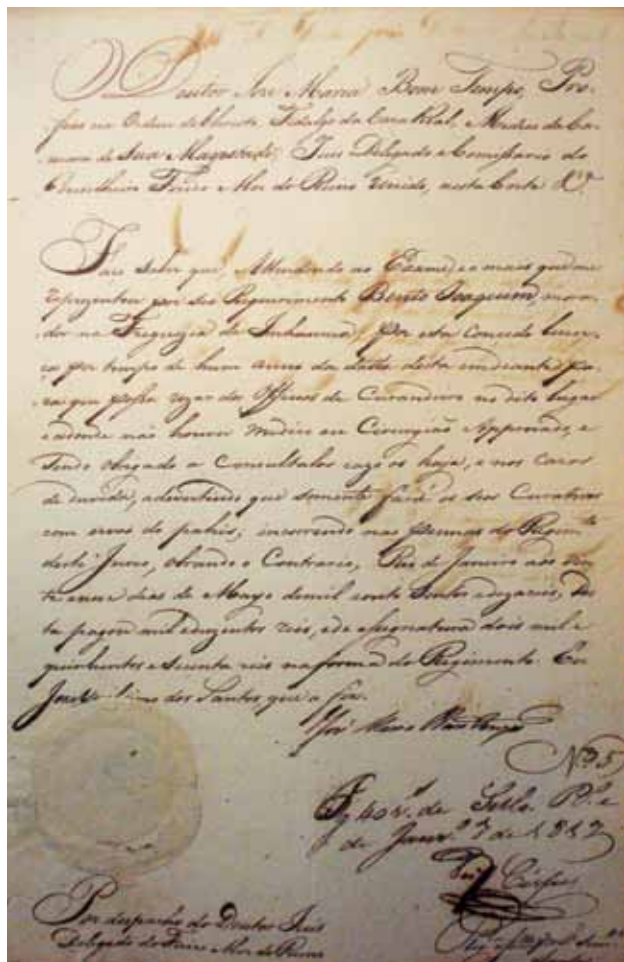 O Doutor Jose Maria Bom Tempo, Pro-
fesso na Ordem de Christo, Fidalgo da Caza Real, Medico da Ca-
mara de Sua Magestade, Juis Delegado e Comissario do
Conselheiro Fizico Mor do Reino Unido, nesta Corte &.ª
Faco saber que, Attendendo ao Exame, e a mais que me
reprezentou por seo Requerimento Bento Joaquim, mora-
dor na Freguezia de Inhauma, por esta concedo licen-
ça por tempo de hum anno da data desta em diante pa-
ra que possa uzar do Officio de Curandeiro no dito lugar
e adonde não houver Medico ou Cirurgião Approvado, e
Sendo obrigado a Consultalos cazo os haja, e nos cazos
de duvida, advertindo que somente fará os seos Curativos
com ervas do pahis, incorrendo nas pennas do Regim.to
deste Juizo, obrando o Contrario, Rio de Janeiro aos
de Mayo de mil oito Sentos e dezaseis, des-
ta pagou mil e duzentos reis, e de assignatura dois mil e
quinhentos e secenta reis na forma do Regimento. Eu
dos Santos que a fiz.
José Maria Bom tempo
N.º 5
Pg 40 r.s de Sello. R.º
de Janr.º 7 de 1817
Por despacho do Doutor Juis
Delegado do Fizico Mor do Reino